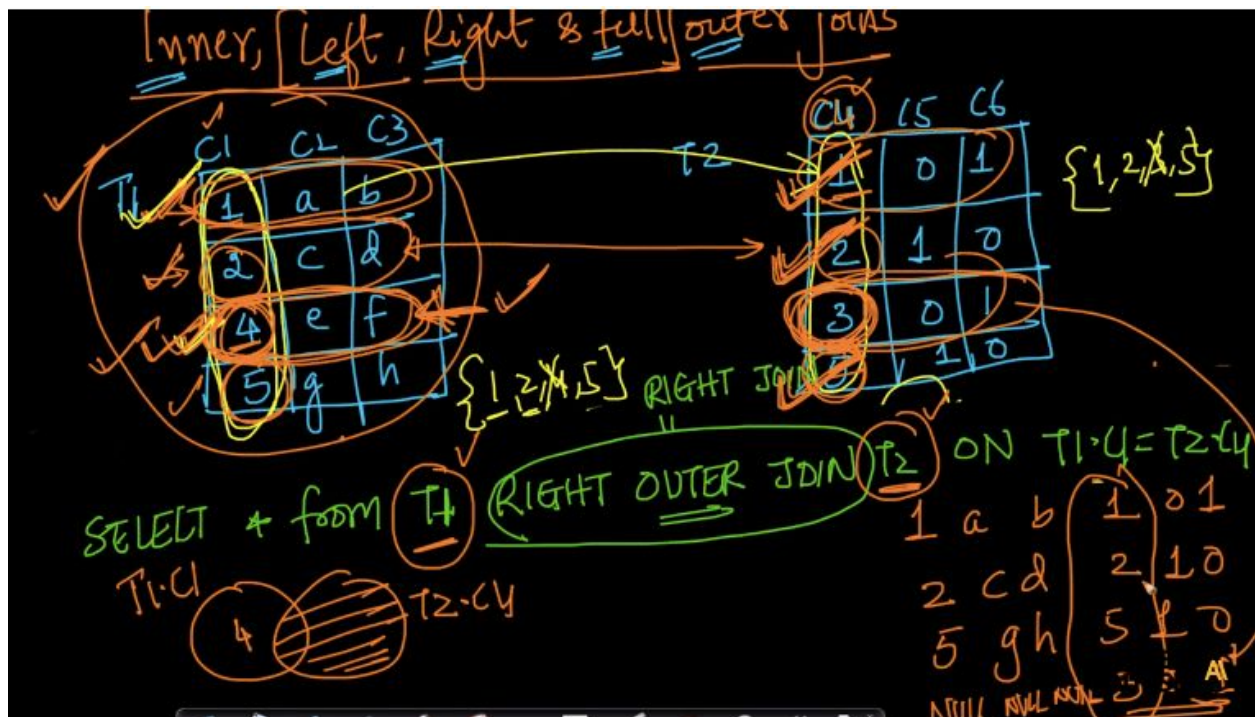 Inner, [Left, Right & full] outer joins
C1 C2 C3
T1
1 a b
2 c d
4 e f
5 g h
{1, 2, 4, 5}
T2
C4 C5 C6
1 0 1
2 1 0
3 0 1
5 1 0
{1, 2, 4, 5}
RIGHT JOIN
SELECT * from T1 RIGHT OUTER JOIN T2 ON T1.C1=T2.C4
T1.C1
4
T2.C4
1 a b 1 0 1
2 c d 2 1 0
5 g h 5 1 0
NULL NULL NULL 3